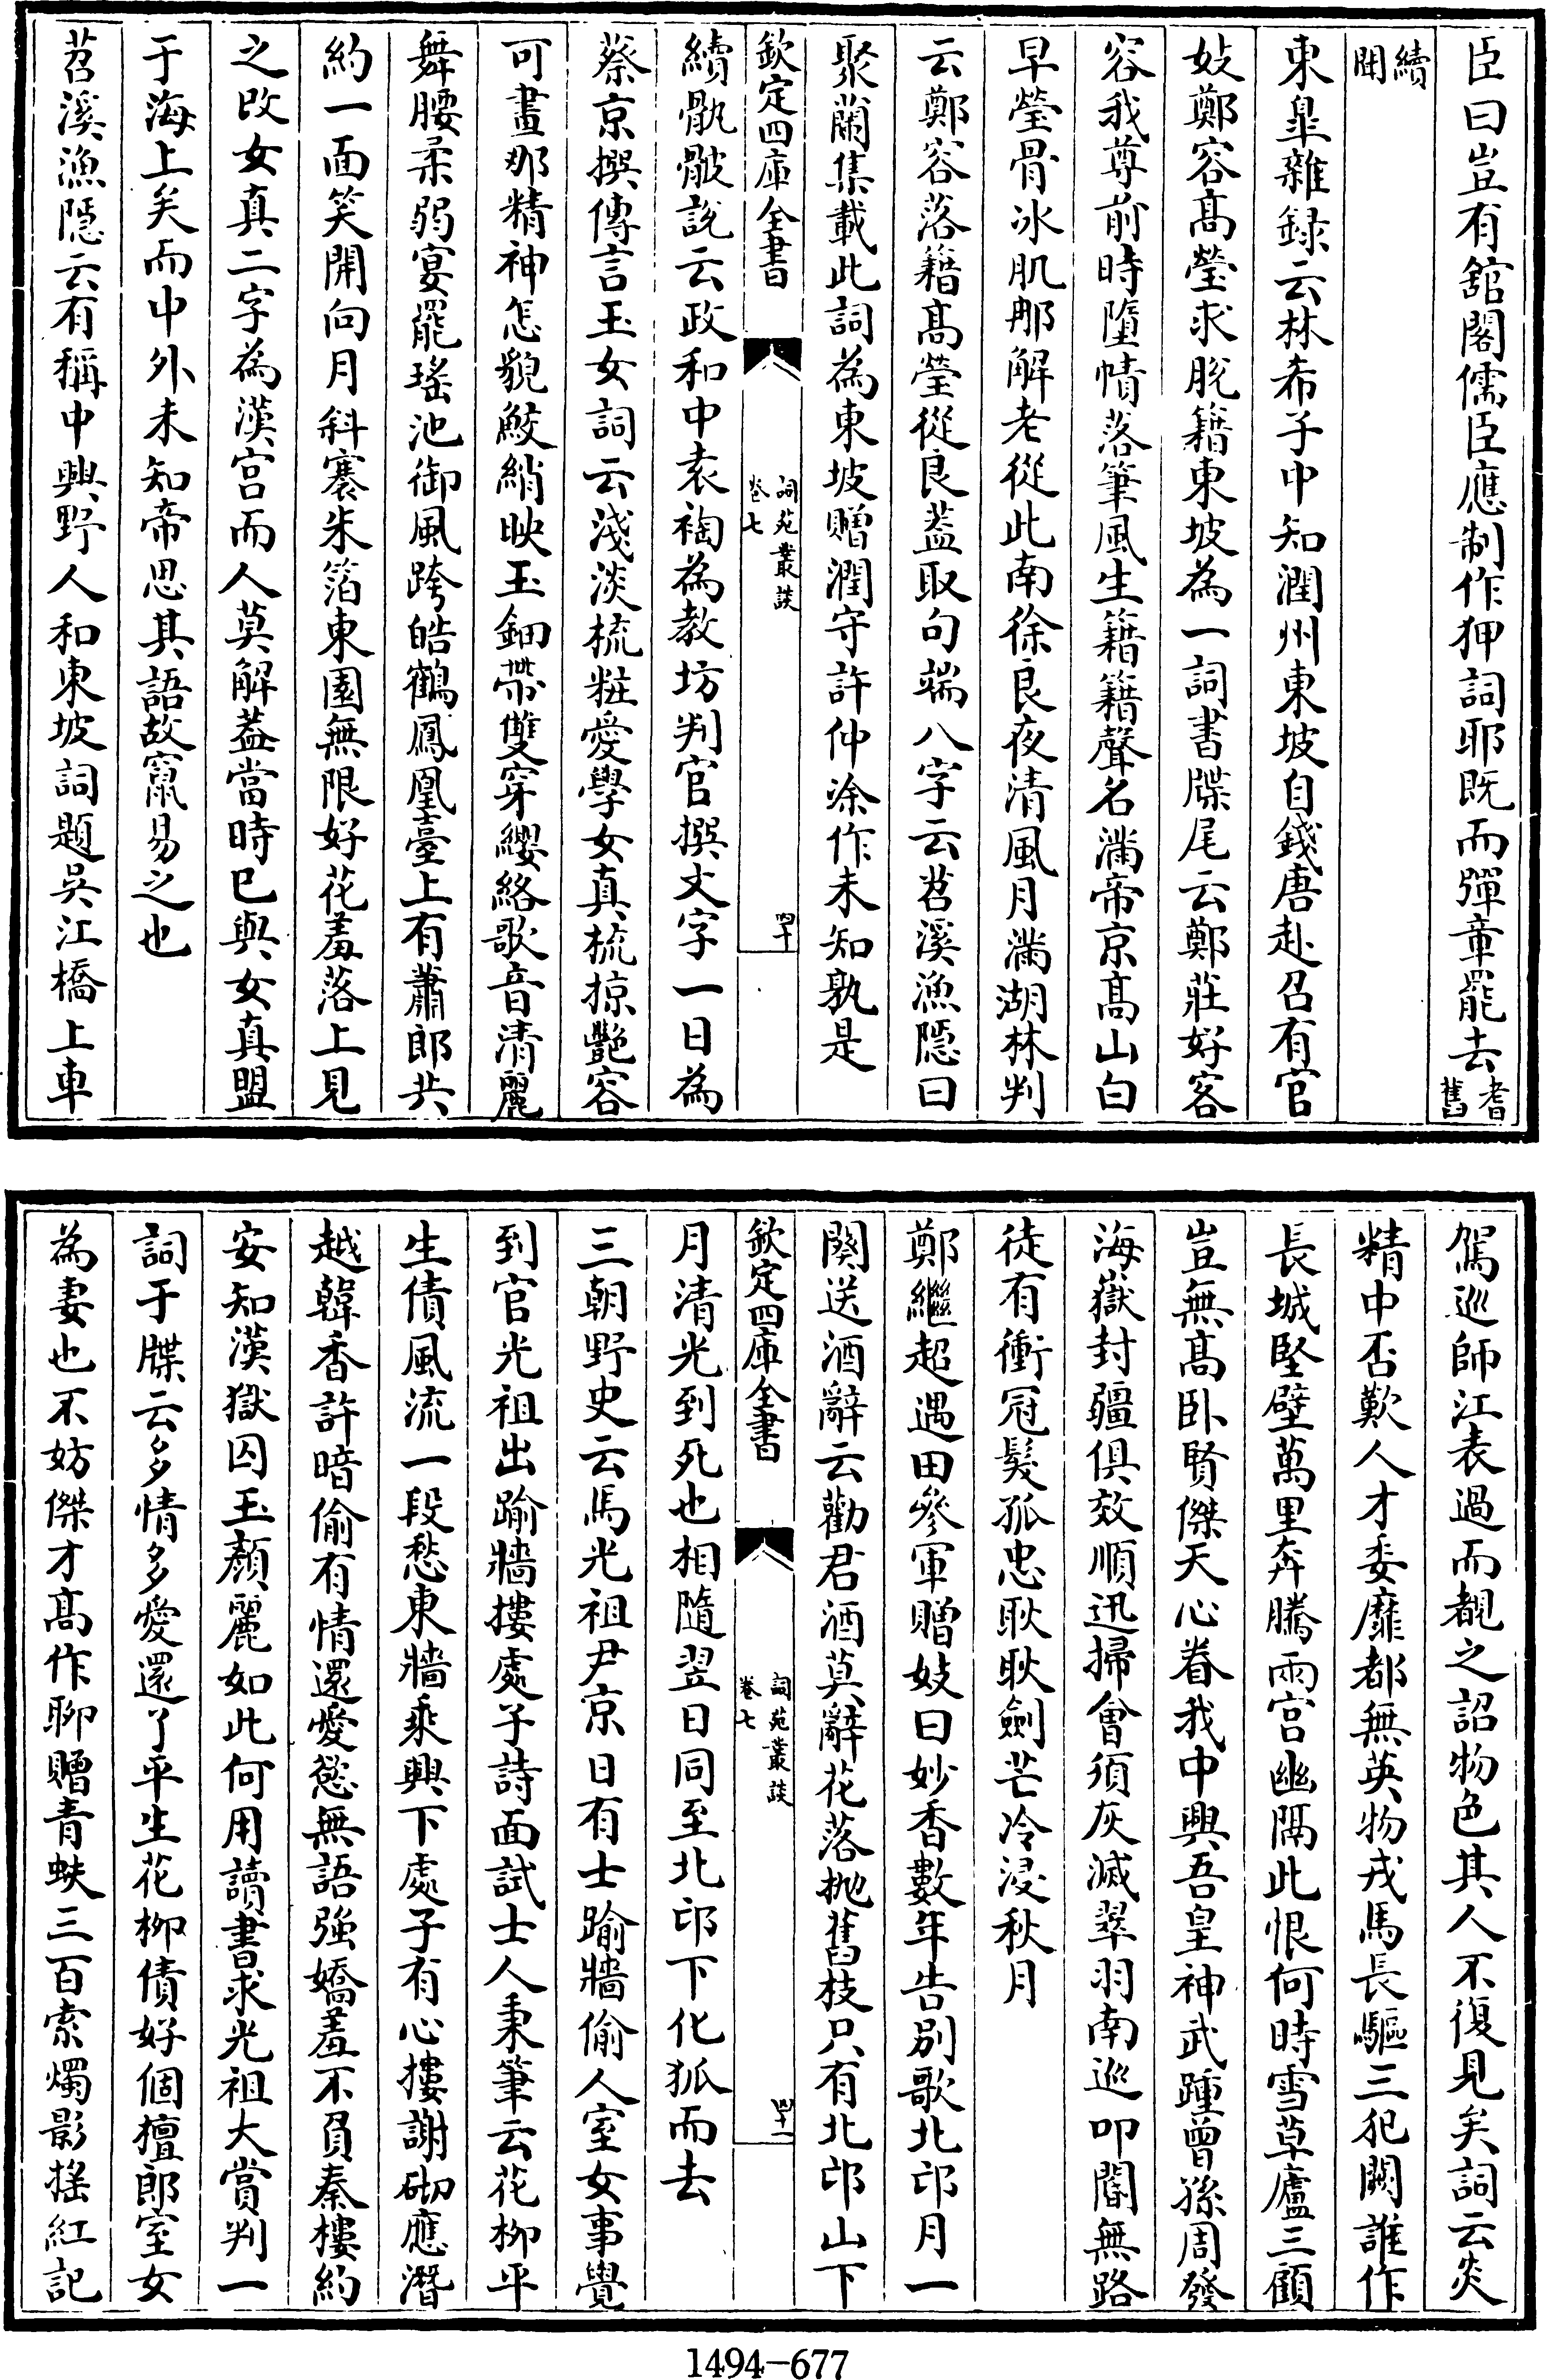 臣曰豈有舘閣儒臣應制作狎詞耶既而彈章罷去耆舊
續聞
東臯雜録云林希子中知潤州東坡自錢唐赴召有官
妓鄭容髙瑩求脱籍東坡為一詞書牒尾云鄭莊好客
容我尊前時墮幘落筆風生籍籍聲名滿帝京髙山白
早瑩骨冰肌那解老從此南徐良夜清風月滿湖林判
云鄭容落籍髙瑩從良葢取句端八字云苕溪漁隱曰
聚蘭集載此詞為東坡贈潤守許仲塗作未知孰是
欽定四庫全書
詞苑叢談
卷七
四十
續骫骳說云政和中袁裪為教坊判官撰文字一日為
蔡京撰傳言玉女詞云淺淡梳粧愛學女真梳掠艷容
可畫那精神怎貌鮫綃映玉鈿帶雙穿纓絡歌音清麗
舞腰柔弱宴罷瑤池御風跨皓鶴鳳凰臺上有蕭郎共
約一面笑開向月斜褰朱箔東園無限好花羞落上見
之改女真二字為漢宫而人莫解葢當時已與女真盟
于海上矣而中外未知帝思其語故竄易之也
苕溪漁隱云有稱中興野人和東坡詞題吳江橋上車
駕巡師江表過而覩之詔物色其人不復見矣詞云炎
精中否歎人才委靡都無英物戎馬長驅三犯闕誰作
長城堅壁萬里奔騰兩宫幽隔此恨何時雪草廬三顧
豈無髙卧賢傑天心眷我中興吾皇神武踵曾孫周發
海嶽封疆俱效順迅掃會須灰滅翠羽南巡叩閽無路
徒有衝冠髮孤忠耿耿劍芒冷浸秋月
鄭繼超遇田參軍贈妓曰妙香數年告别歌北邙月一
闋送酒辭云勸君酒莫辭花落抛舊枝只有北邙山下
欽定四庫全書
詞苑叢談
卷七
四十一
月清光到死也相隨翌日同至北邙下化狐而去
三朝野史云馬光祖尹京日有士踰牆偷人室女事覺
到官光祖出踰牆摟處子詩面試士人秉筆云花柳平
生債風流一段愁東牆乘興下處子有心摟謝砌應潛
越韓香許暗偷有情還愛慾無語強嬌羞不負秦樓約
安知漢獄囚玉顏麗如此何用讀書求光祖大賞判一
詞于牒云多情多愛還了平生花柳債好個檀郎室女
為妻也不妨傑才髙作聊贈青蚨三百索燭影揺紅記
1494-677